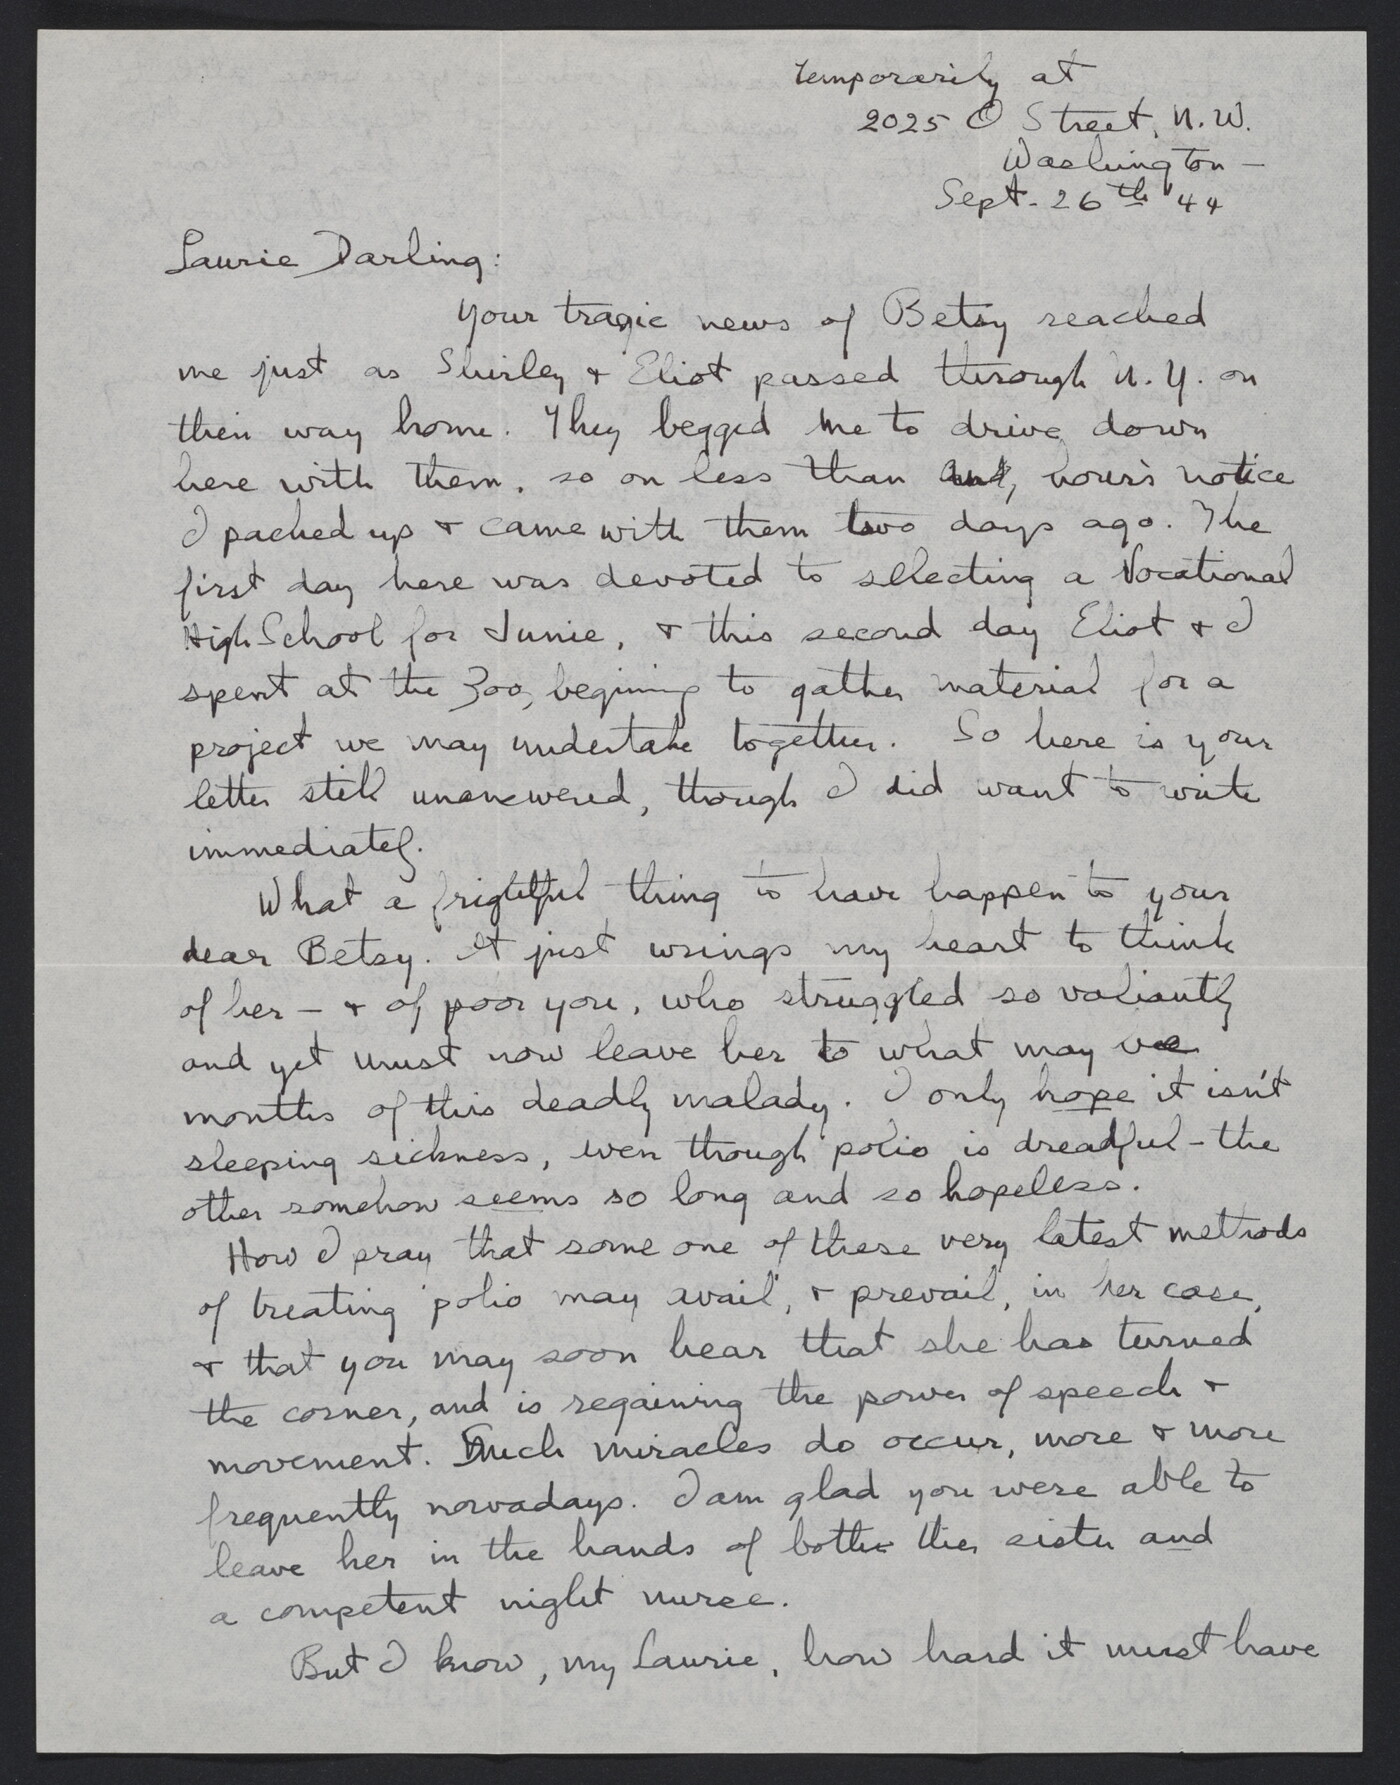 Temporarily at
2025 O Street, N.W.
Washington –
Sept. 26th '44
Laurie Darling:
Your tragic news of Betsy reached
me just as Shirley & Eliot passed through N.Y. on
their way home. They begged me to drive down
here with them, so on less than hour's notice
I packed up & came with them two days ago. The
first day here was devoted to selecting a Vocational
High School for Junie, & this second day Eliot & I
spent at the Zoo, begining to gather material for a
project we may undertake together. So here is your
letter still unanswered, though I did want to write
immediately.
What a frightful thing to have happen to your
dear Betsy. It just wrings my heart to think
of her – & of poor you, who struggled so valiantly
and yet must now leave her to what may be
months of this deadly malady. I only hope it isn't
sleeping sickness, even though polio is dreadful – the
other somehow seems so long and so hopeless.
How I pray that some one of these very latest methods
of treating polio may avail, & prevail, in her case,
& that you may soon hear that she has turned
the corner, and is regaining the power of speech &
movement. Such miracles do occur, more & more
frequently nowadays. I am glad you were able to
leave her in the hands of both sister and
a competent night nurse.
But I know, my Laurie, how hard it must have